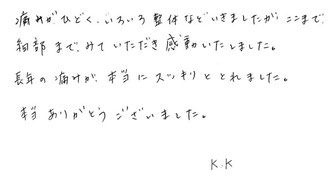 痛みがひどく、いろいろ整体などいきましたが、ここまで
細部までみていただき感動いたしました。
長年の痛みが本当にスッキリととれました。
本当ありがとうございました。
K.K